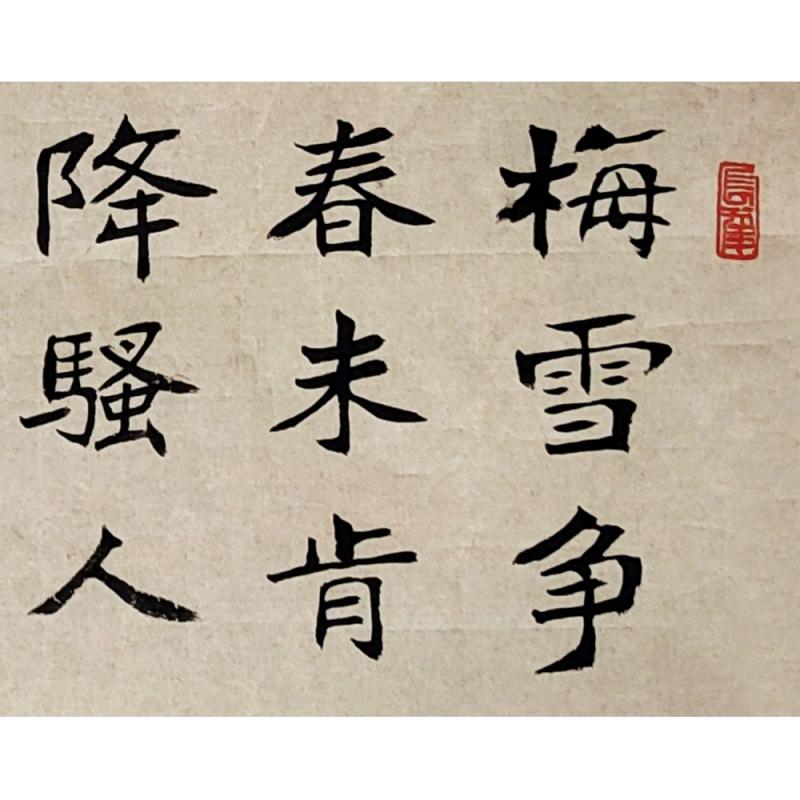 梅雪争
春未肯
降骚人